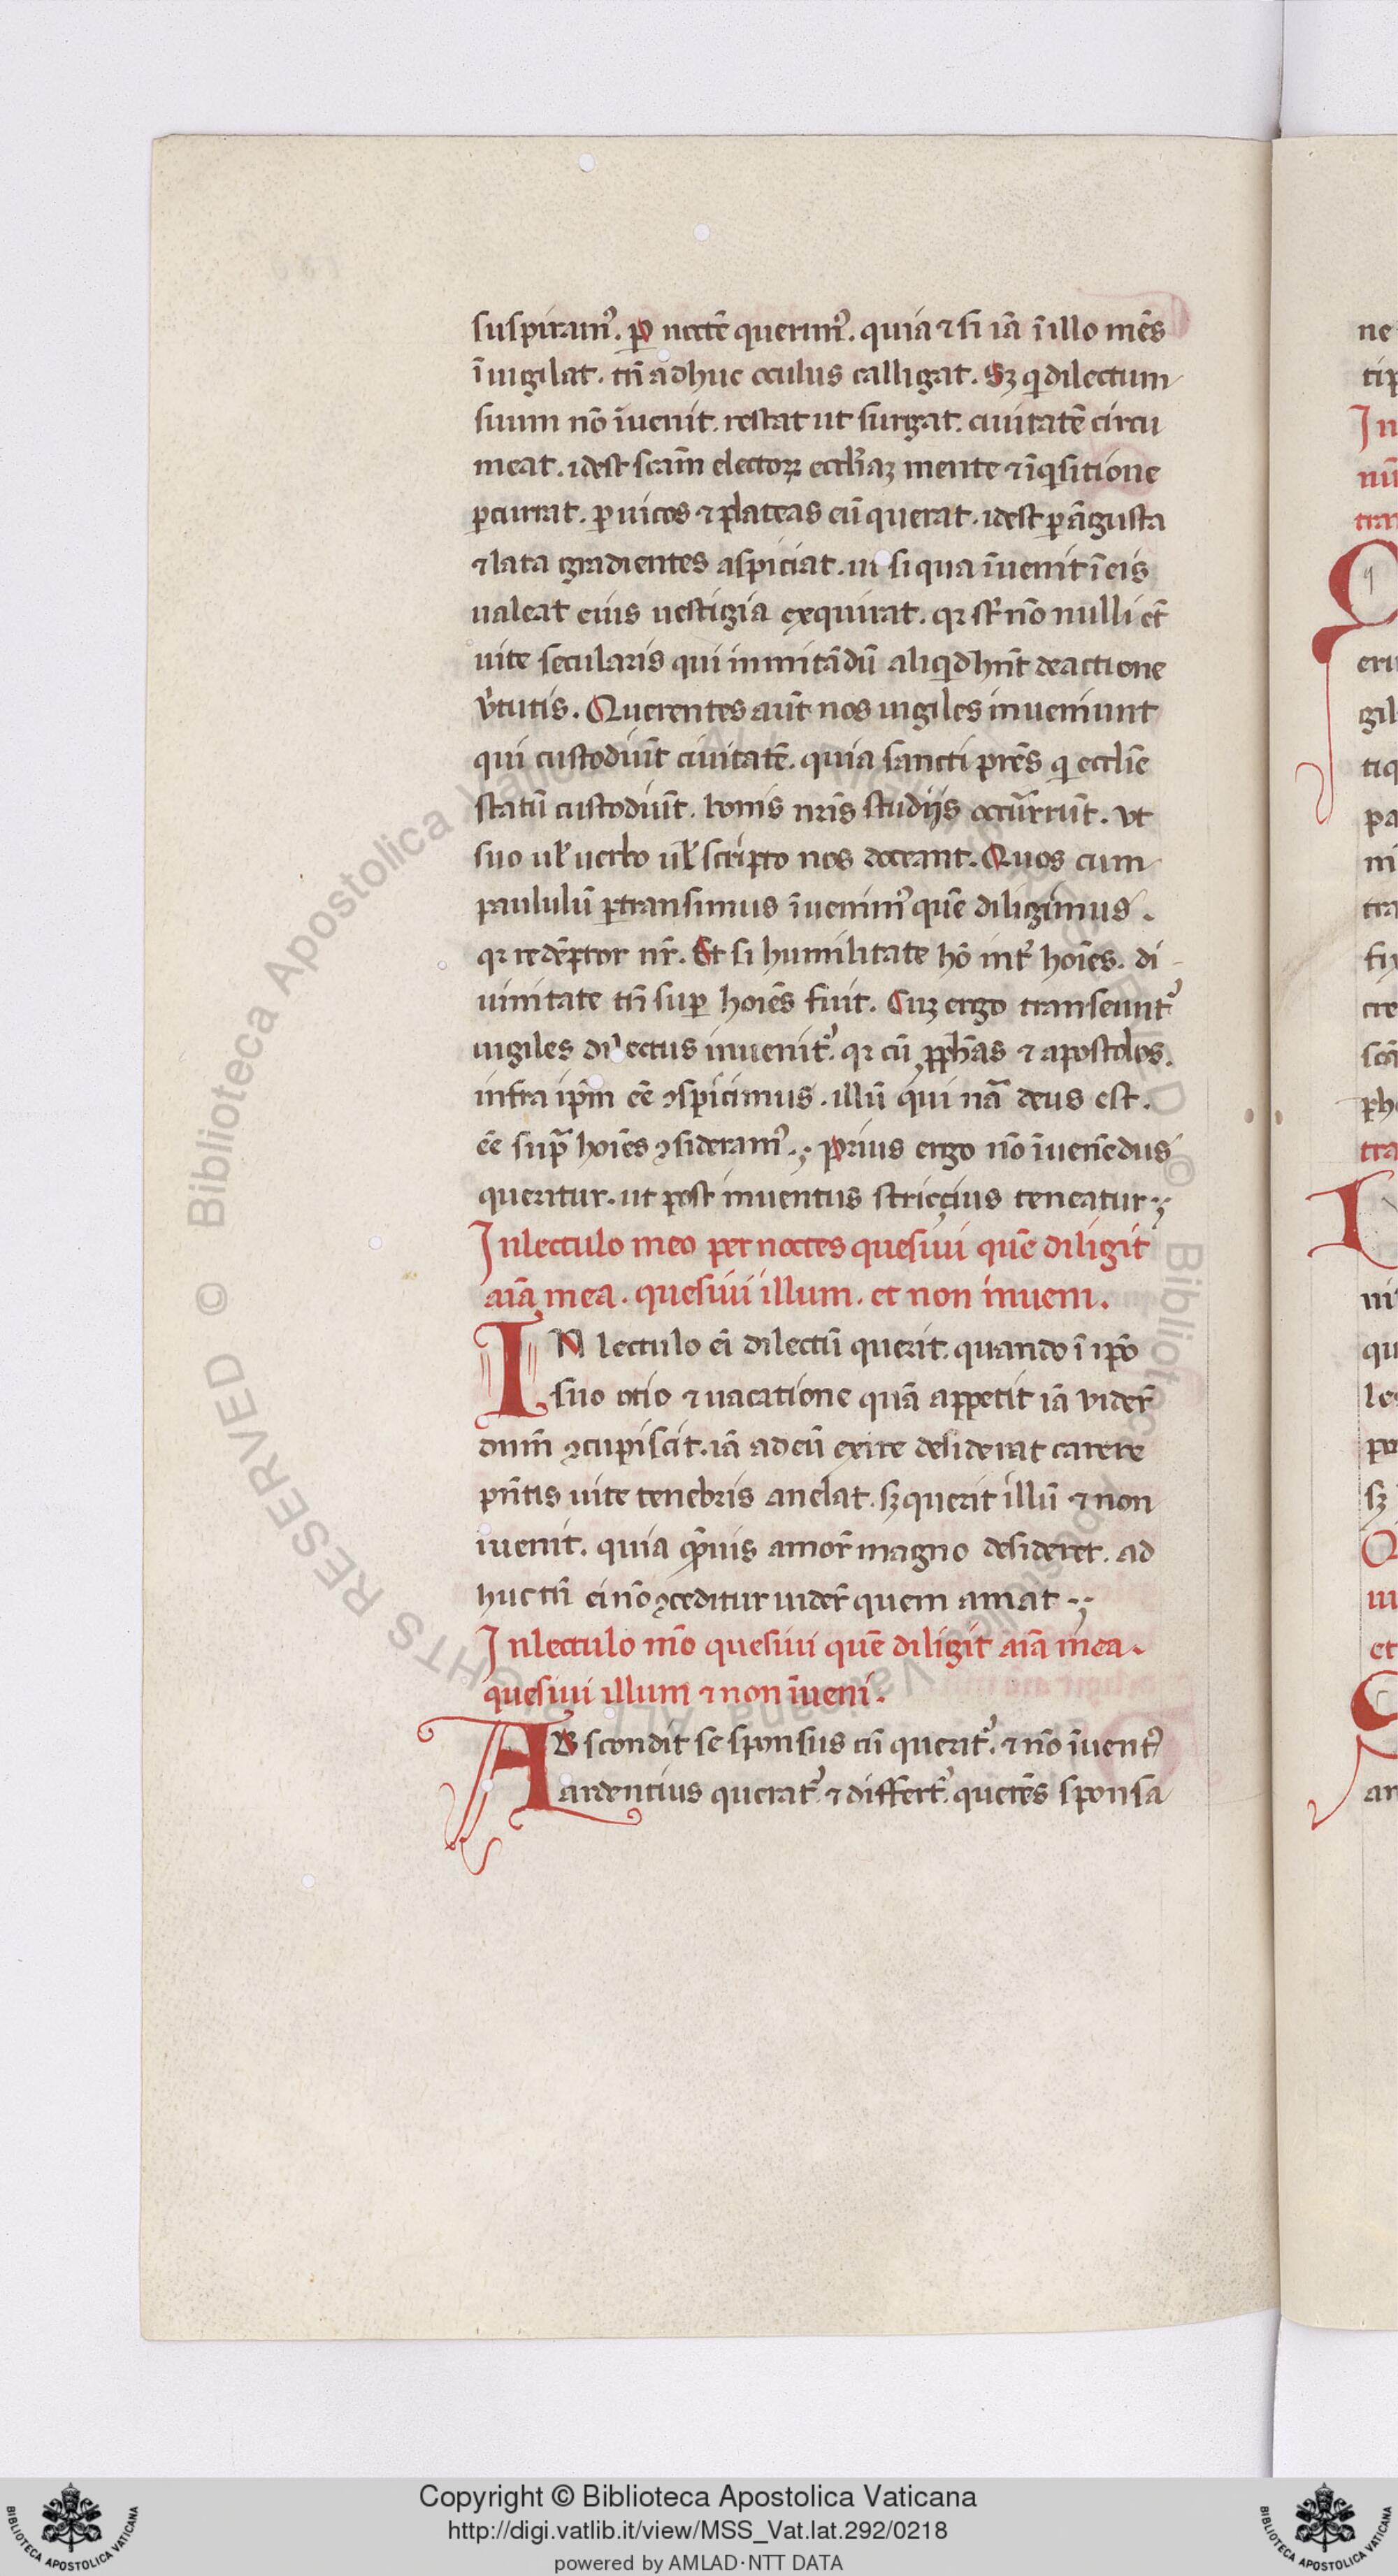 suspiram᷒. ꝑ noctē querim᷒. quia ⁊ si iā ī illo mēs
īuigilat. tn̄ adhuc oculus calligat. Sꝫ q̇ dilectum
suum nō īuenit. restat ut surgat. ciuitatē circu
meat. idest scām electoꝝ eccl̄iaꝫ mente ⁊ īq̇sitione
ꝑcurrat. ꝑ uicos ⁊ plateas cū querat. idest ꝑ āgusta
⁊ lata gradientes aspiciat. ut si qua īuenit ī eis
ualeat eius uestigia exquirat. qꝛ st̄ nō nulli et̄
uite secularis qui inmitādū aliqd̓ hn̄t de actione
v̓tutis. Querentes aūt nos uigiles inueniunt
qui custodiūt ciuitatē. quia sancti pr̄es q̇ eccl̄ie
statū custodiūt. bonis nr̄is studijs occurrūt. vt
suo ul̄ uerbo ul̄ scripto nos doceant. Quos cum
paululū ꝑtransimus īuenim᷒ quē diligimus.
qꝛ redēptor nr̄. Et si humilitate hō int̓ hoīes. di
uinitate tn̄ suꝑ hoīes fuit. Cuꝫ ergo transeunt᷒
uigiles dilectus inuenit᷒. qꝛ cū ꝓph̄as ⁊ apostolos.
infra ip̄m eē ꝯspicimus. illū qui nā deus est.
eē sup̄ hoīes ꝯsideram᷒. Prius ergo nō īuenēdus
queritur. ut post inuentus stricçius teneatur
In lectulo meo per noctes quesiui quē diligit
aīa mea. quesiui illum. et non inueni.
IN lectulo eī dilectū querit. quando ī ip̄o
suo otio ⁊ uacatione quā appetit iā vider̄
dum̄ ꝯcupiscit. iā ad eū exire desiderat carere
pn̄tis uite tenebris anelat. sꝫ querit illū ⁊ non
iuenit. quia q̄uis amor̄ magno desideret. ad
huc tn̄ ei nō ꝯceditur uider̄ quem amat
In lectulo mō quesiui quē diligit aīa mea.
quesiui illum ⁊ non īueni.
ABscondit se sponsus cū querit᷒. ⁊ nō īuent᷒
ardentius querat᷒. ⁊ differt᷒. querēs sponsa
Copyright © Biblioteca Apostolica Vaticana
http://digi.vatlib.it/view/MSS_Vat.lat.292/0218
powered by AMLAD·NTT DATA